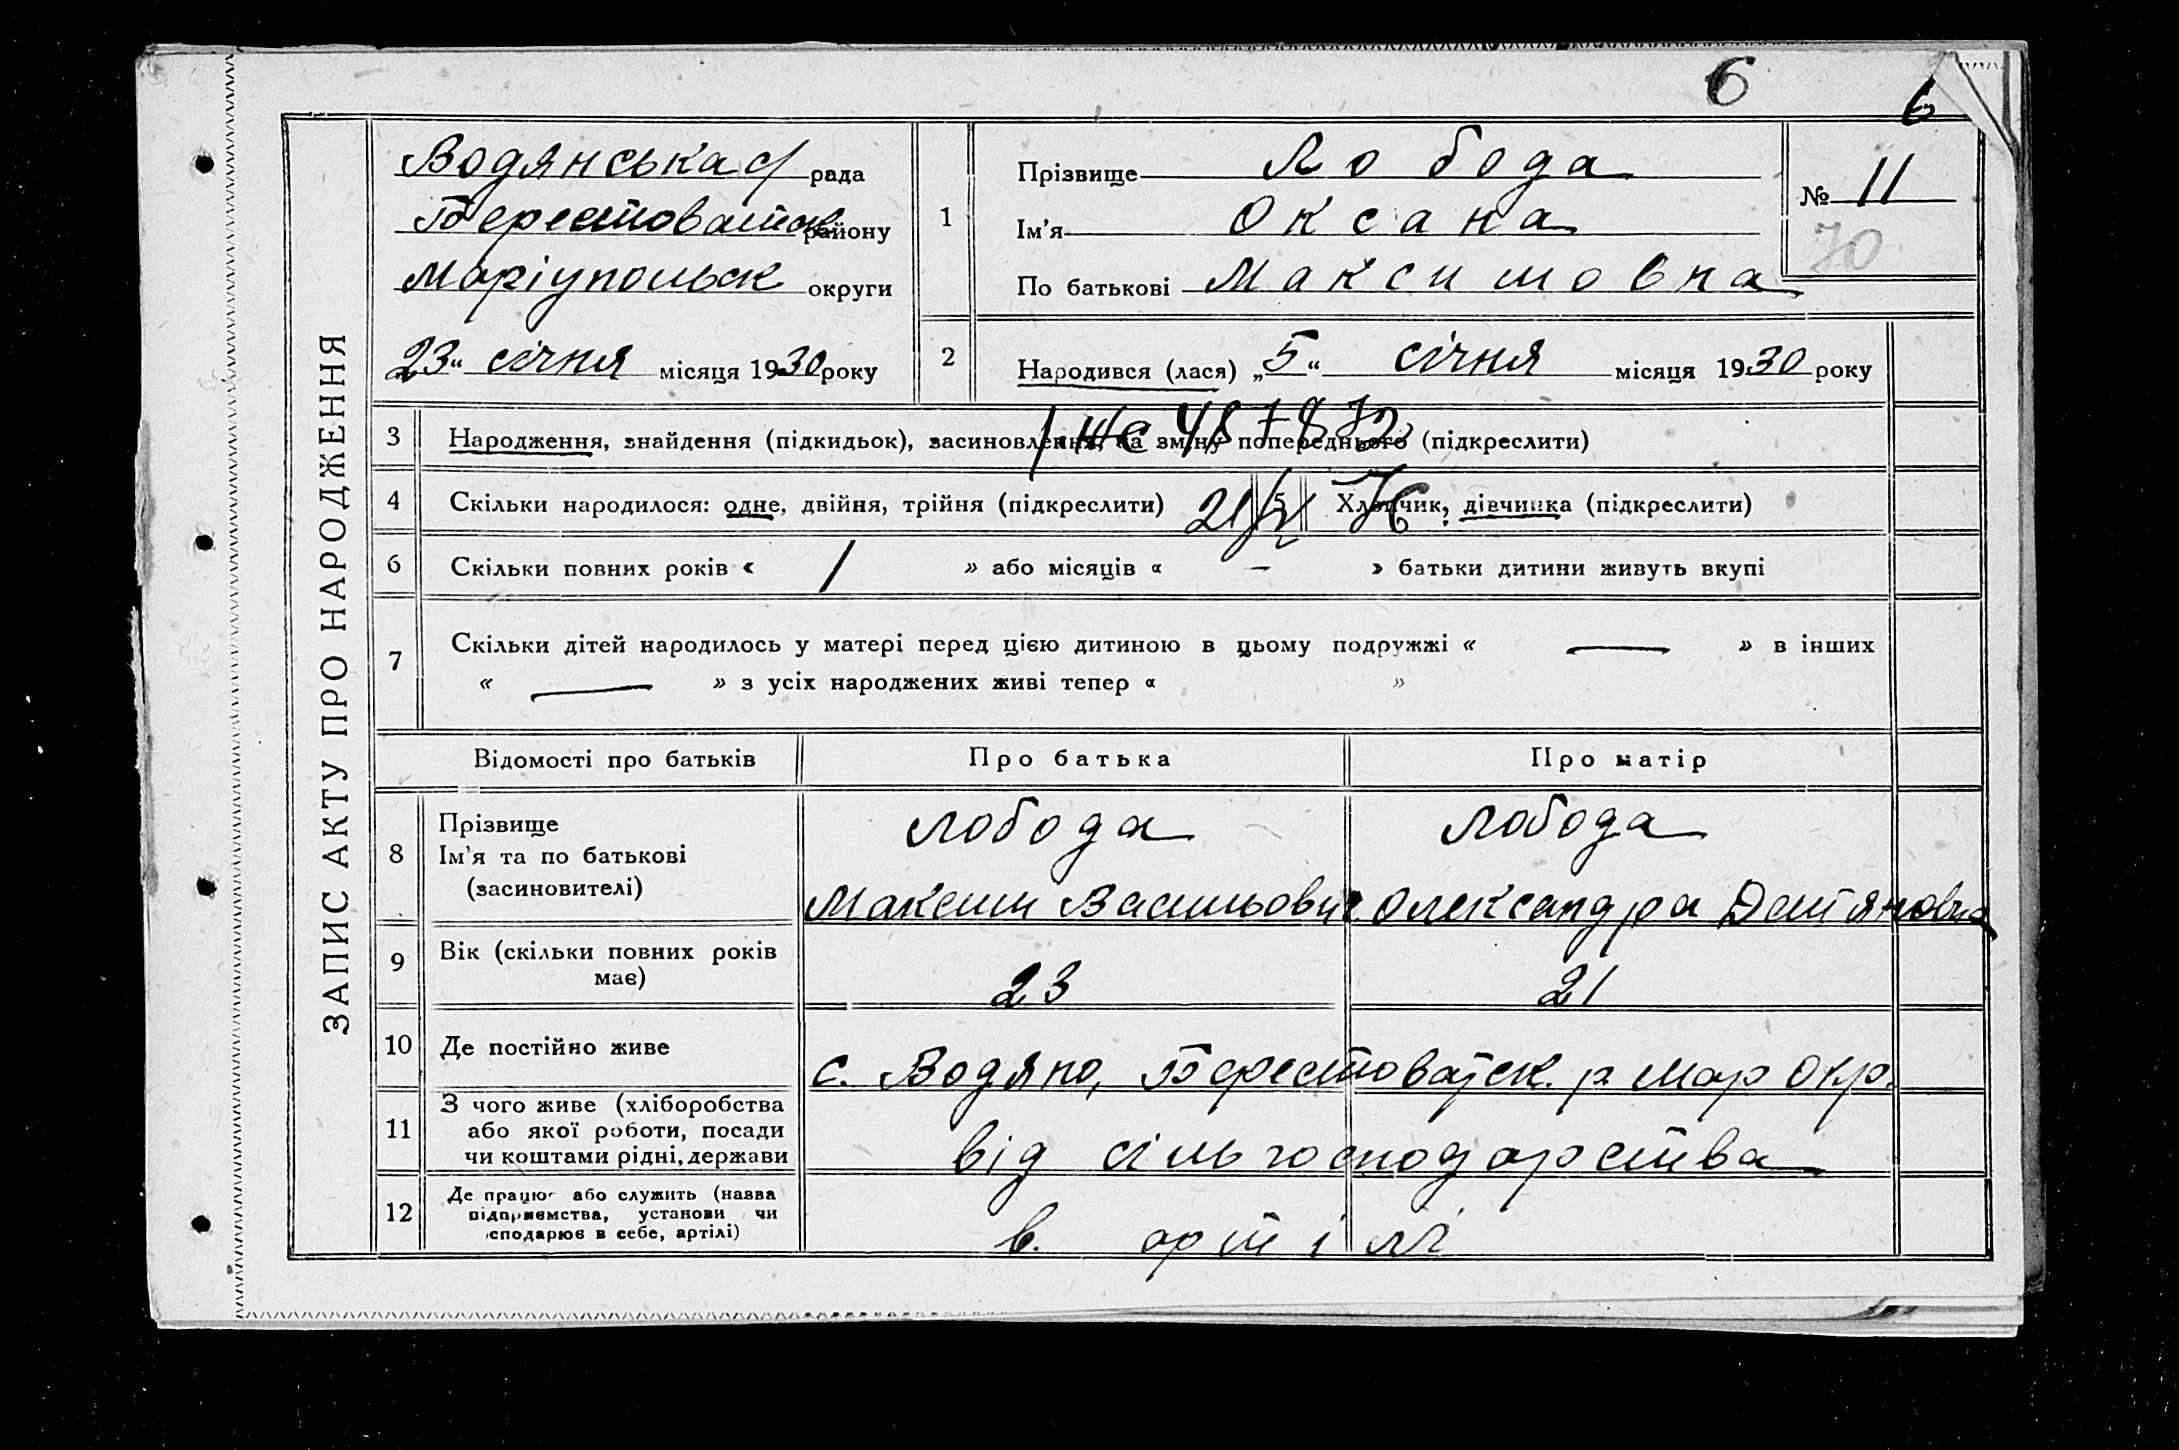 6
6
ЗАПИС АКТУ ПРО НАРОДЖЕННЯ
Водянська с/рада
Берестоватськ району
Маріупольск округи
23 „ січня місяця 1930 року
1
Прізвище Лобода
Ім'я Оксана
По батькові Максимовна
№ 11
70
2
Народився (лася) „5“ січня місяця 1930 року
3 Народження, знайдення (підкидьок), засиновлення, на зміну попереднього (підкреслити)
4 Скільки народилося: одне, двійня, трійня (підкреслити)
5 Хлопчик, дівчинка (підкреслити)
6 Скільки повних років « 1 » або місяців « – » батьки дитини живуть вкупі
7 Скільки дітей народилось у матері перед цією дитиною в цьому подружжі « — » в інших
« — » з усіх народжених живі тепер « »
Відомості про батьків Про батька Про матір
8 Прізвище
Ім'я та по батькові
(засиновителі)
Лобода
Максим Васильович
Лобода
Олександра Демяновна
9 Вік (скільки повних років
має)
23 21
10 Де постійно живе
с. Водяно, Берестоватск. р Мар Окр.
11 З чого живе (хліборобства
або якої роботи, посади
чи коштами рідні, держави
від сільгосподарства
12 Де працює або служить (назва
підприємства, установи чи
сподарює в себе, артілі)
в. артілі